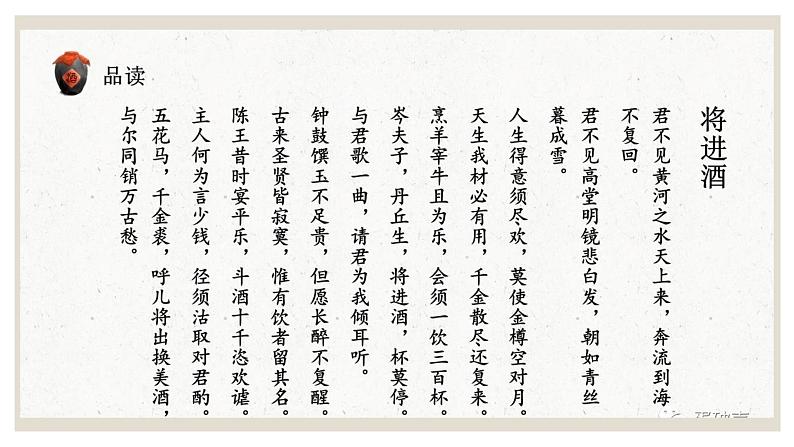 品读
将进酒
君不见黄河之水天上来，奔流到海
不复回。
君不见高堂明镜悲白发，朝如青丝
暮成雪。
人生得意须尽欢，莫使金樽空对月。
天生我材必有用，千金散尽还复来。
烹羊宰牛且为乐，会须一饮三百杯。
岑夫子，丹丘生，将进酒，杯莫停。
与君歌一曲，请君为我倾耳听。
钟鼓馔玉不足贵，但愿长醉不复醒。
古来圣贤皆寂寞，惟有饮者留其名。
陈王昔时宴平乐，斗酒十千恣欢谑。
主人何为言少钱，径须沽取对君酌。
五花马，千金裘，呼儿将出换美酒，
与尔同销万古愁。
酒